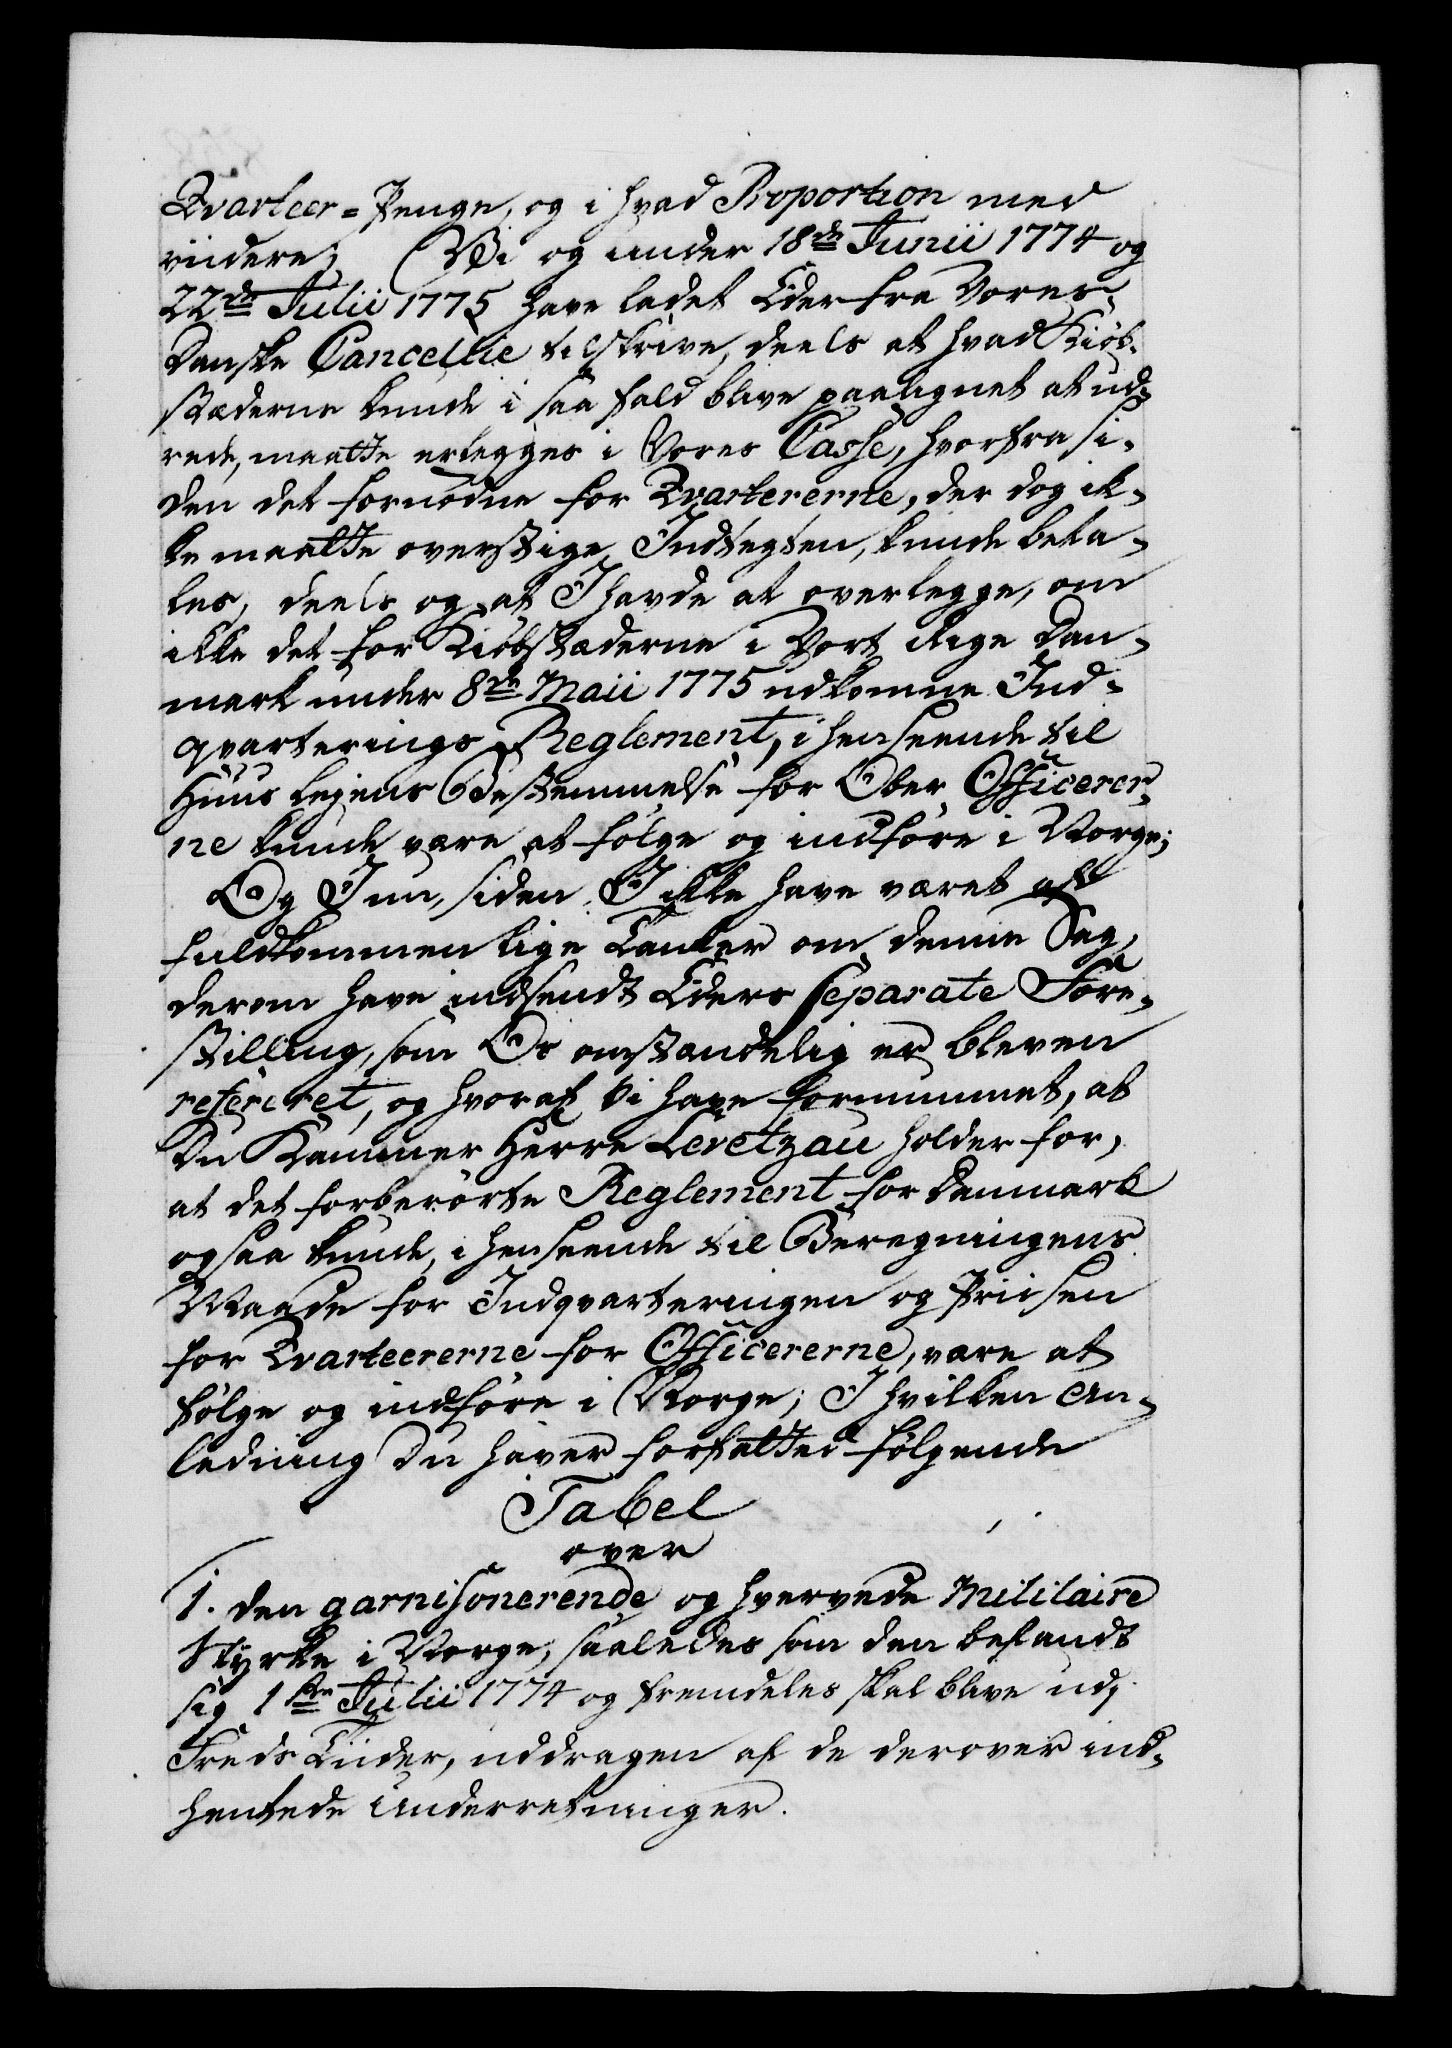 Qvarteer-Penge, og i hvad Proportion med
viidere; Vi og under 18de Junii 1774 og
22de Julii 1775 have ladet Eder fra Vores
Danske Cancellie tilskrive, deels at hvad Kiøb-
stæderne kunde i saa fald blive paalignet at ud-
rede, maatte erlegges i Vores Casse, hvorfra si-
den det fornødne for Qvartererne, der dog ik-
ke maatte overstige Indtegten, kunde beta-
les, deels og at I havde at overlegge, om
ikke det for Kiøbstæderne i Vort Rige Dan-
mark under 8de Maii 1775 udkomne Ind-
qvarterings Reglement, i henseende til
Huus leyens Bestemmelse for Ober Officerer-
ne kunde være at følge og indføre i Norge;
Og I nu, siden I ikke have været af
fuldkommen lige Tanker om denne Sag,
derom have indsendt Eders separate Fore-
stilling, som Os omstændelig er bleven
refereret, og hvoraf Vi have fornummet, at
Du Kammer Herre Levetzau holder for,
at det forberørte Reglement for Danmark
ogsaa kunde, i henseende til Beregningens
Maade for Indqvarteringen og Priisen
for Qvarteererne for Officererne, være at
følge og indføre i Norge; I hvilken An-
ledning Du haver forfattet følgende
Tabel
over
1. den garnisonerende og hvervede Militaire
Styrke i Norge, saaledes som den befandt
sig 1ste Julii 1774 og fremdeles skal blive udi
Freds Tiider, uddragen af de derover ind-
hentede Underretninger.